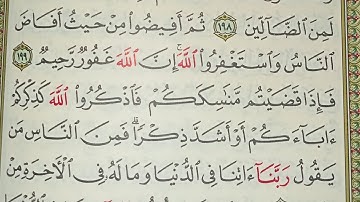 لَمِنَ ٱلضَّآلِّينَ ١٩٨ ثُمَّ أَفِيضُوا۟ مِنْ حَيْثُ أَفَاضَ
ٱلنَّاسُ وَٱسْتَغْفِرُوا۟ ٱللَّهَ ۚ إِنَّ ٱللَّهَ غَفُورٌ رَّحِيمٌ ١٩٩
فَإِذَا قَضَيْتُم مَّنَٰسِكَكُمْ فَٱذْكُرُوا۟ ٱللَّهَ كَذِكْرِكُمْ
ءَابَآءَكُمْ أَوْ أَشَدَّ ذِكْرًا ۗ فَمِنَ ٱلنَّاسِ مَن
يَقُولُ رَبَّنَآ ءَاتِنَا فِى ٱلدُّنْيَا وَمَا لَهُۥ فِى ٱلْءَاخِرَةِ مِنْ